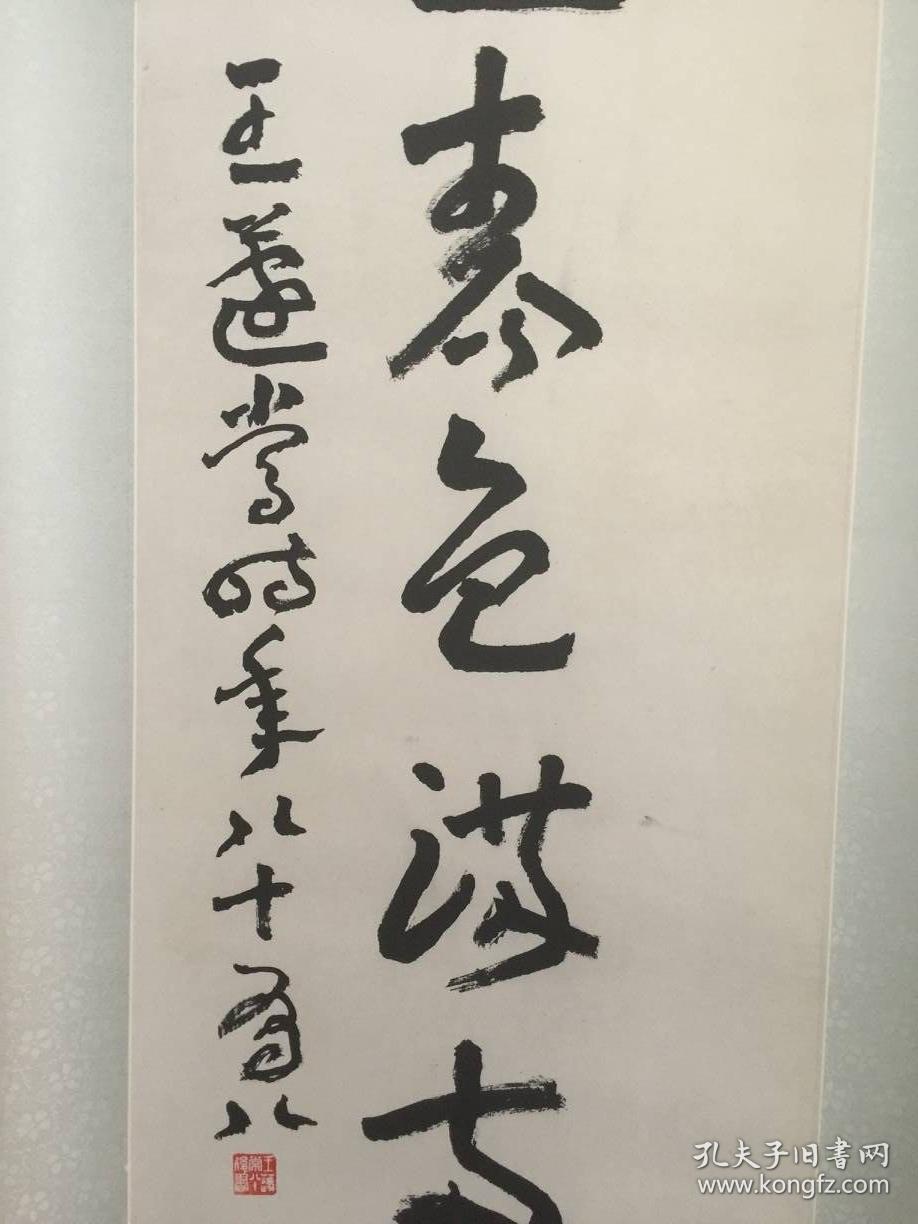 春色满
王蘧常时年八十有八
孔夫子旧书网
www.kongfz.com